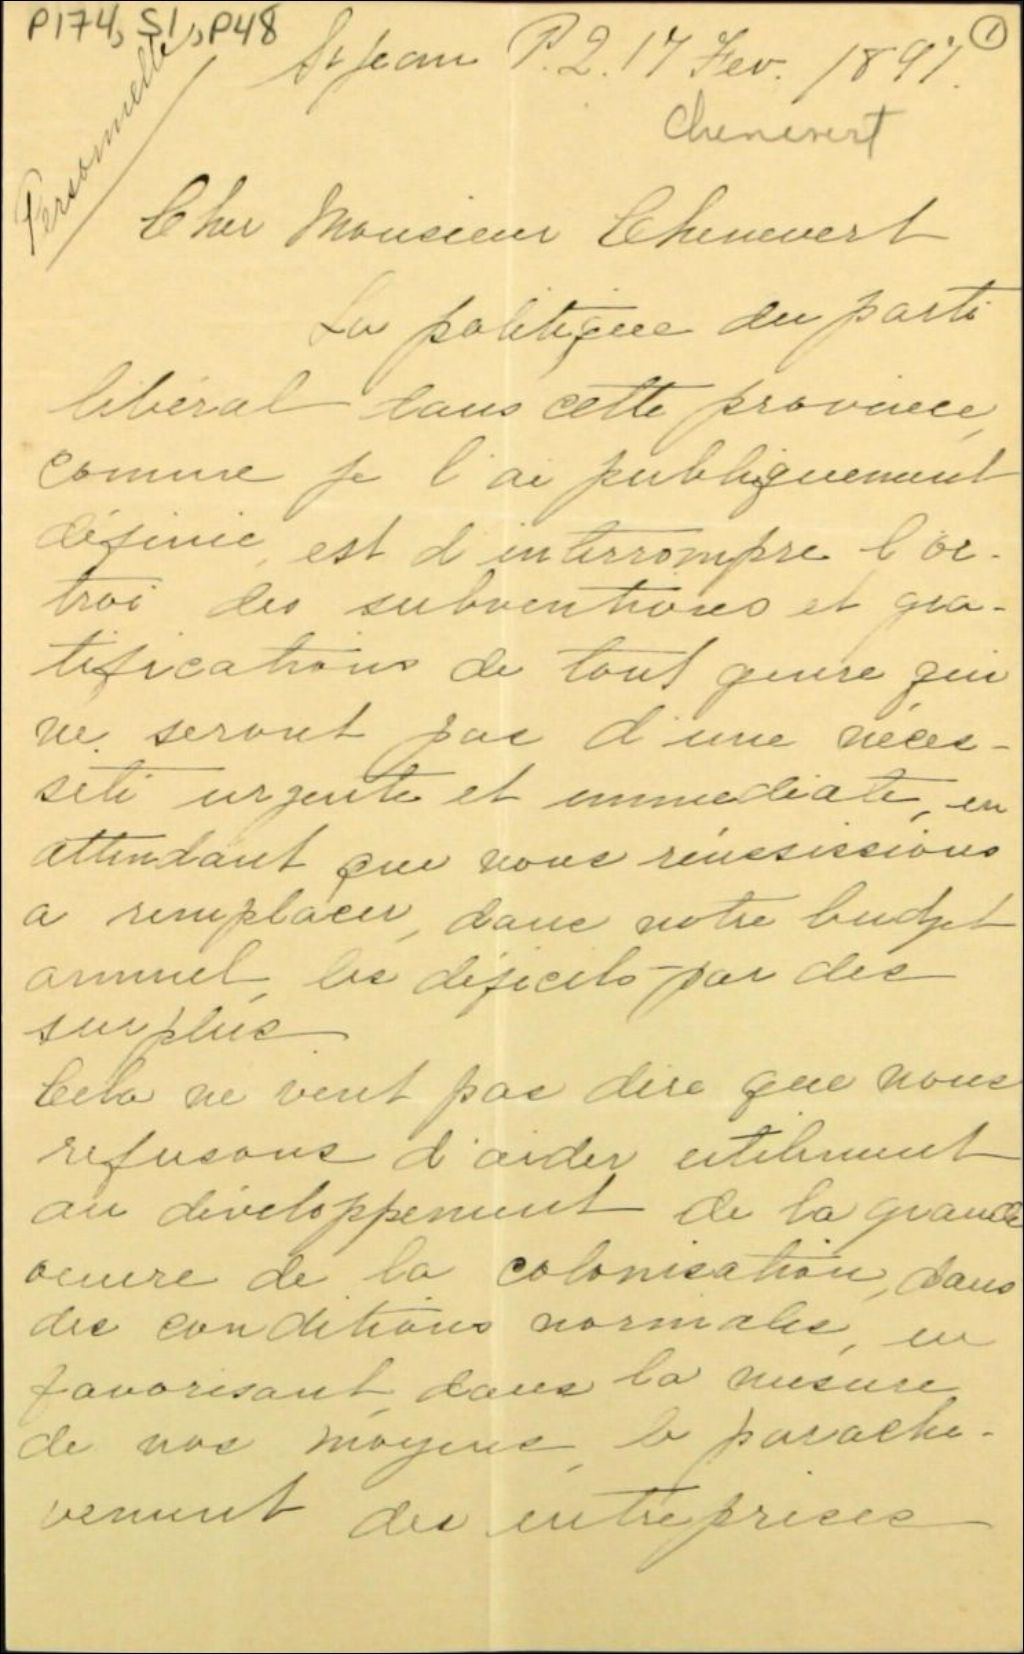 P174, S1, P48
1
St Jean P. Q. 17 Fev. 1897.
Chenevert
Personnelle
Cher Monsieur Chenevert
La politique du parti
libéral dans cette province,
comme je l'ai publiquement
définie, est d'interrompre l'oc-
troi des subventions et gra-
tifications de tout genre qui
ne seront pas d'une néces-
sité urgente et immédiate, en
attendant que nous réussissions
a remplacer, dans notre budget
annuel, les déficits par des
surplus
Cela ne veut pas dire que nous
refusons d'aider utilement
au développement de la grande
oeuvre de la colonisation, dans
des conditions normales, en
favorisant, dans la mesure
de nos moyens, le parachè-
vement des entreprises